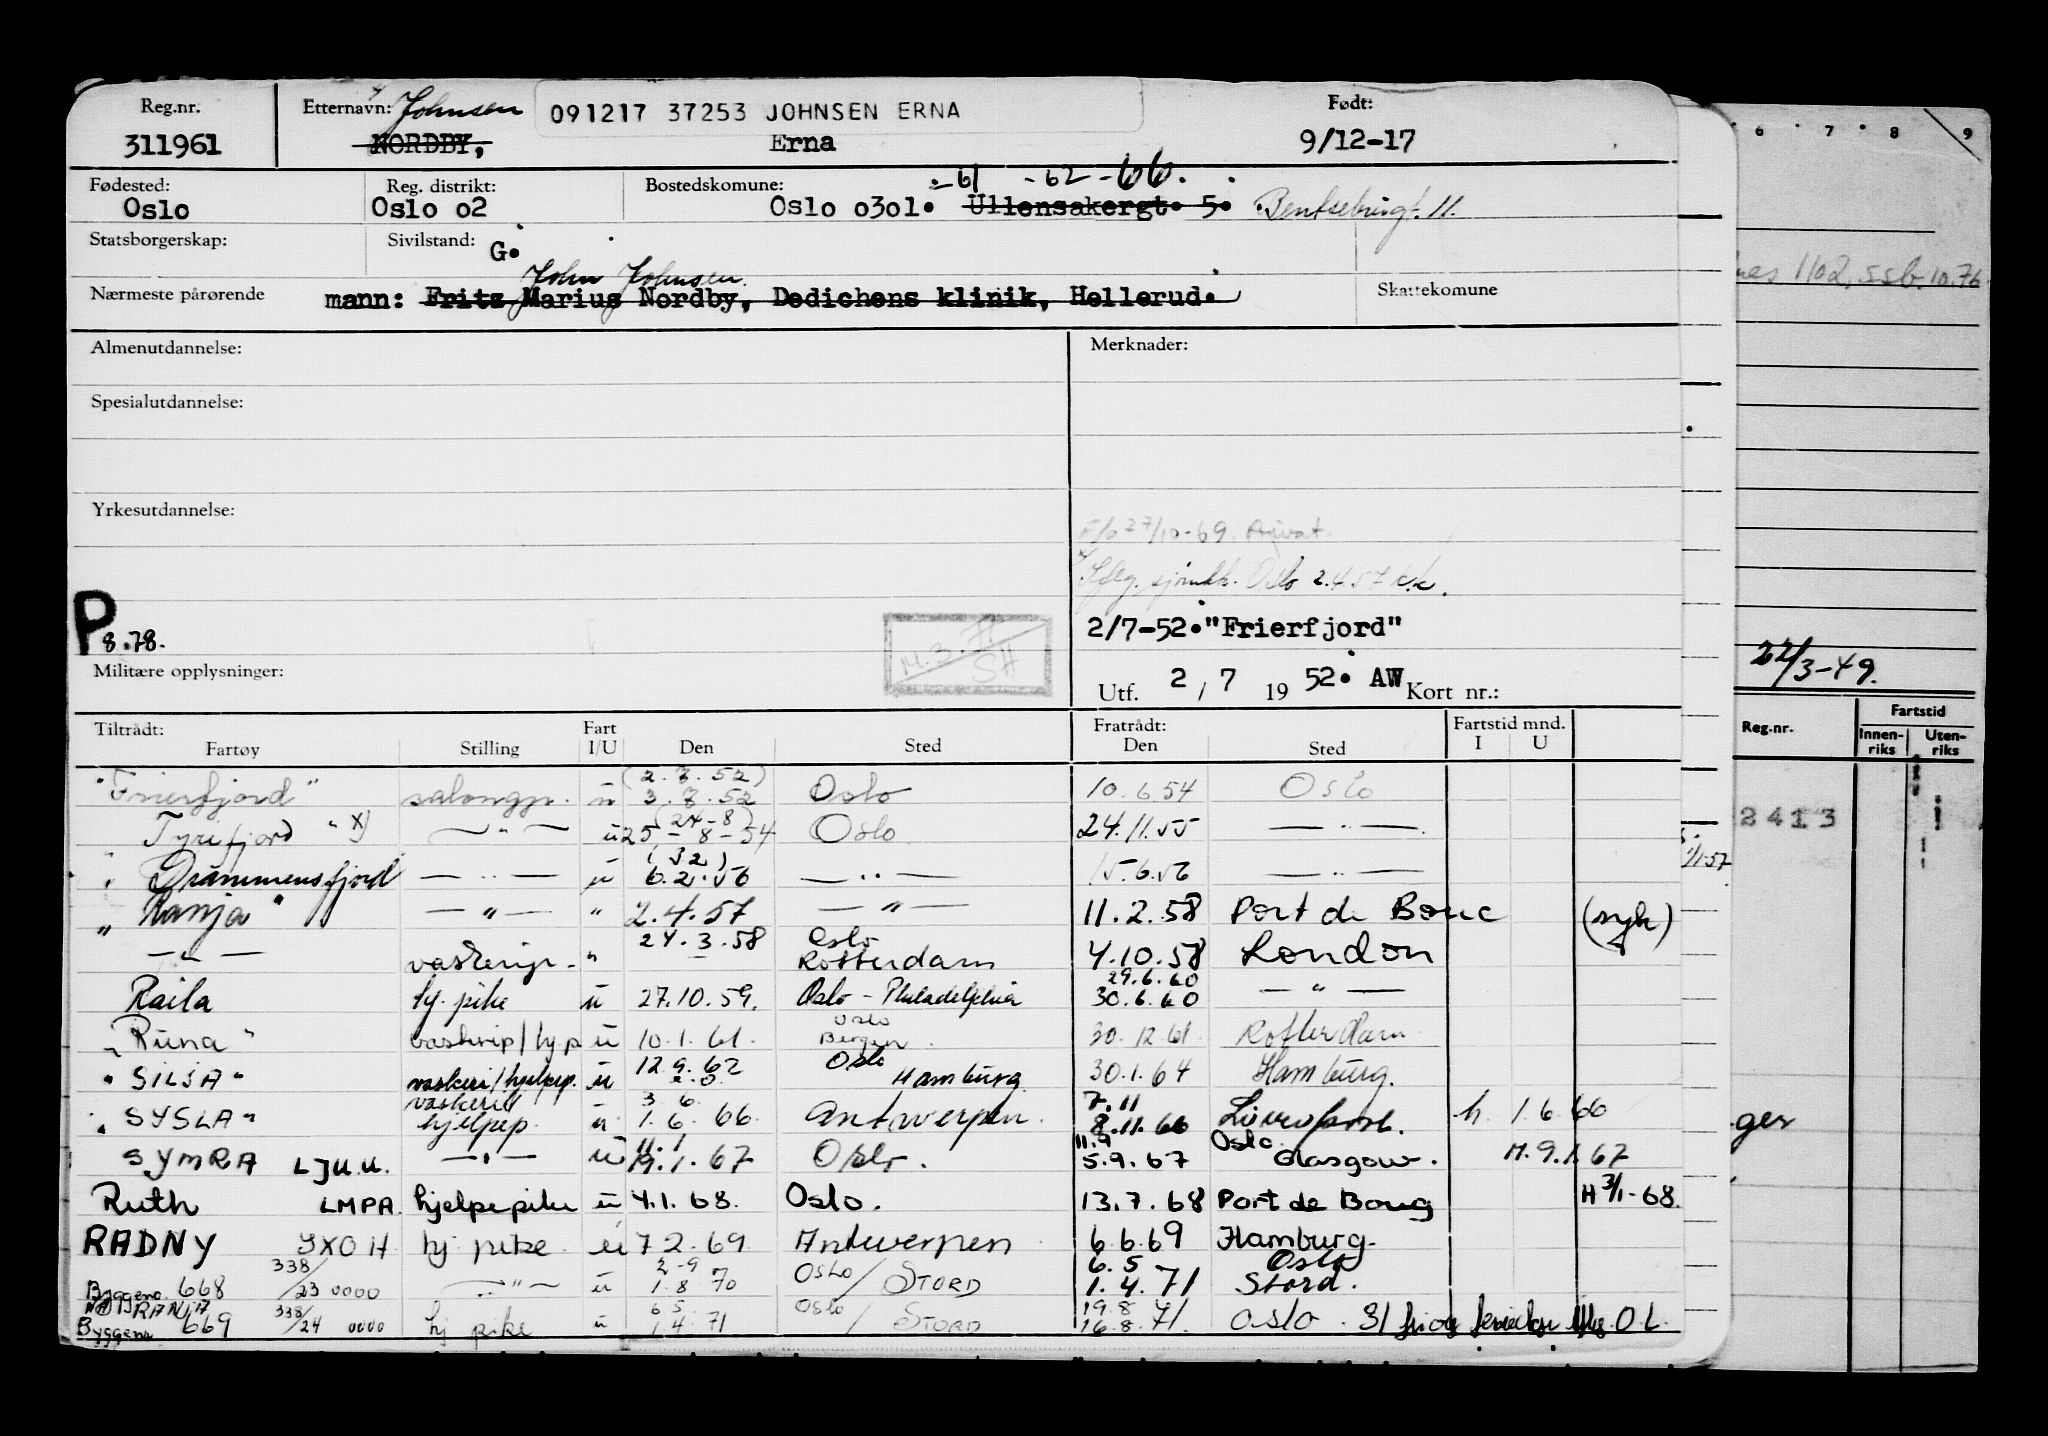 Reg.nr. Etternavn: Johnsen 091217 37253 JOHNSEN ERNA Født:
311961 NORDBY, Erna 9/12-17
Fødested: Reg. distrikt: Bostedskomune: -61 -62 -66.
Oslo Oslo o2 Oslo o3o1. Ullensakergt. 5. Bentsebrugt. 11.
Statsborgerskap: Sivilstand: G.
John Johnsen.
Nærmeste pårørende mann: Fritz Marius Nordby, Dedichens klinik, Hellerud. Skattekomune
Almenutdannelse: Merknader:
Spesialutdannelse:
Yrkesutdannelse:
27/10-69. Privat.
Oslo 2.4.57 k.k.
P 8.78.
2/7-52."Frierfjord"
Militære opplysninger: M.3. SH
Utf. 2 / 7 19 52. AW Kort nr.:
Tiltrådt: Fart Fratrådt: Fartstid mnd.
Fartøy Stilling I/U Den Sted Den Sted I U
(2.7.52)
"Frierfjord" salongp. u 3.7.52 Oslo 10.6.54 Oslo
(24-8)
Tyrifjord " x) — " — u 25-8-54 Oslo 24.11.55 — " —
" Drammensfjord — " — u 6.2.56 — " — 15.6.56 — " —
" Ranja " — " — " 2.4.57 — " — 11.2.58 Port de Bouc (syk)
24.3.58 Oslo
— " — vaskerip. " Rotterdam 4.10.58 London
29.6.60
Raila hj. pike u 27.10.59. Oslo - Philadelphia 30.6.60 — " —
Oslo
" Runa " vaskerip/hjp u 10.1.61. Bergen 30.12.61 Rotterdam
" SILJA " vaskeri/hjelpep. u 12.9.62 Oslo Hamburg 30.1.64 Hamburg.
3.6. 7.11
" SYSLA " hjelpep. u 1.6.66. Antwerpen. 8.11.66 Liverpool. h. 1.6.66
11.1 11.9 Oslo
SYMRA LJUU. — " — u 19.1.67 Oslo. 5.9.67 Glasgow. M.9.1.67
Ruth LMPA. hjelpepike u 4.1.68. Oslo. 13.7.68 Port de Boug H 3/1-68.
RADNY JXOH hj. pike u 7 2.69. Antwerpen 6.6.69 Hamburg.
338/ 2-9 6.5 Oslo
Byggeno. 668 /23 0000 — " — u 1.8 70 Oslo / STORD 1.4.71 Stord.
RANJA 338/ 6 5 Oslo 19.8
Byggenr 669 /24 0000 hj pike u 1.4.71 / STORD 16.8.71. Oslo. O.L.
6 7 8 9
1102, ssb. 10.76
22/3-49.
Reg.nr. Fartstid
Innen-riks Uten-riks
2413
1/1-57
ger